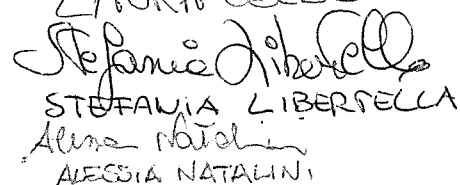 Stefania Libertella
STEFANIA LIBERTELLA
Alessia Natalini
ALESSIA NATALINI